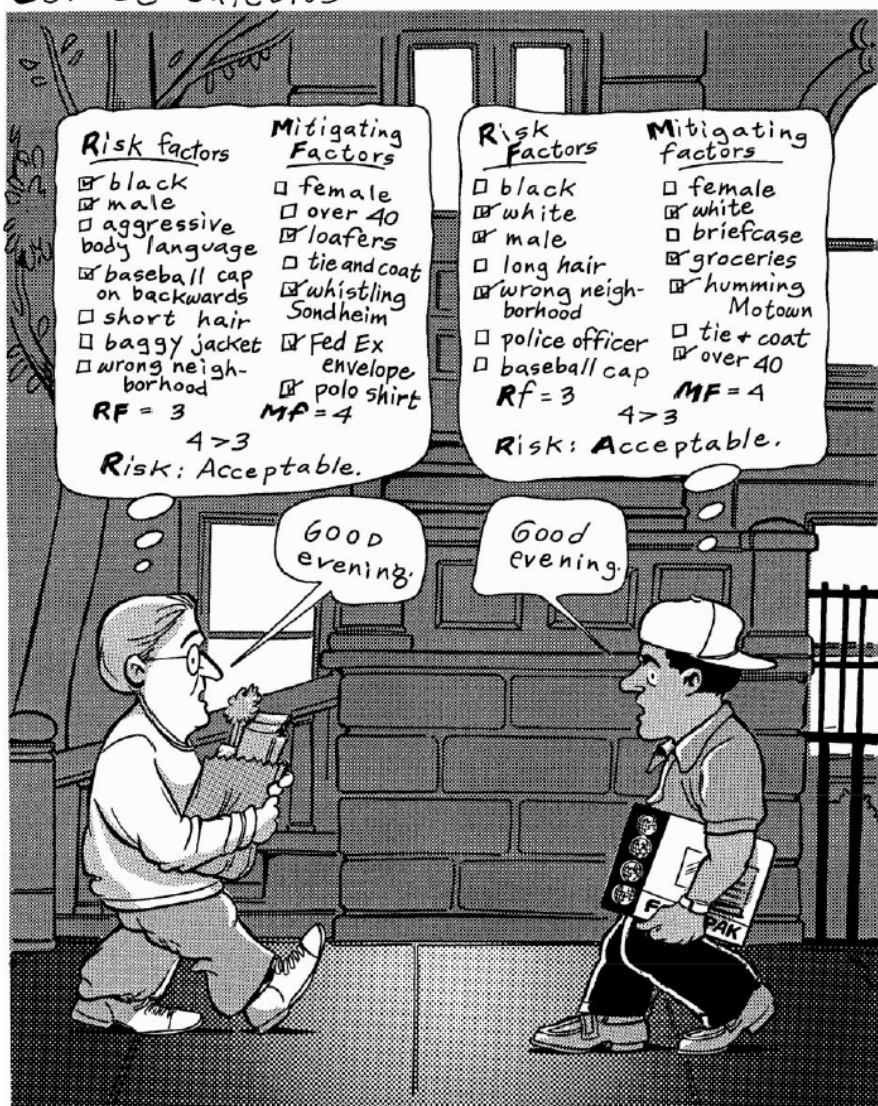 Risk factors
☑ black
☑ male
☐ aggressive
body language
☑ baseball cap
on backwards
☐ short hair
☐ baggy jacket
☐ wrong neigh-
borhood
RF = 3
Mitigating
Factors
☐ female
☐ over 40
☑ loafers
☐ tie and coat
☑ whistling
Sondheim
☑ Fed Ex
envelope
☑ polo shirt
MF = 4
4 > 3
Risk: Acceptable.
Risk
Factors
☐ black
☑ white
☑ male
☐ long hair
☑ wrong neigh-
borhood
☐ police officer
☐ baseball cap
Rf = 3
Mitigating
factors
☐ female
☑ white
☐ briefcase
☑ groceries
☑ humming
Motown
☐ tie + coat
☑ over 40
MF = 4
4 > 3
Risk: Acceptable.
GOOD
evening.
Good
evening.
PAK